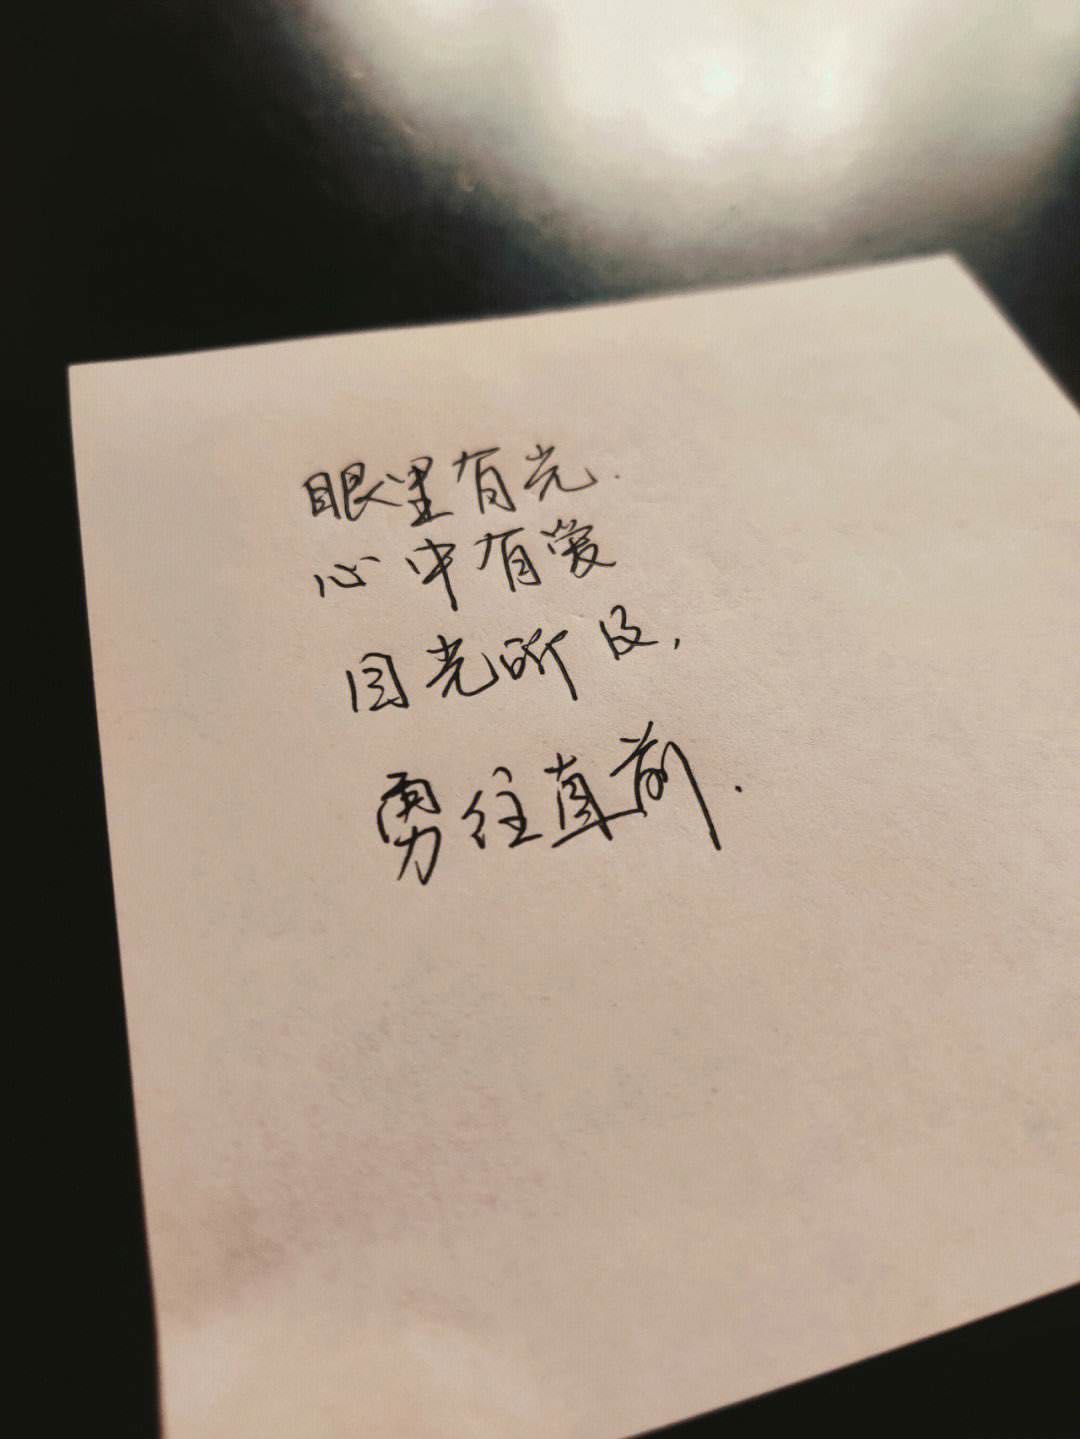 眼里有光.
心中有爱
目光所及,
勇往直前.